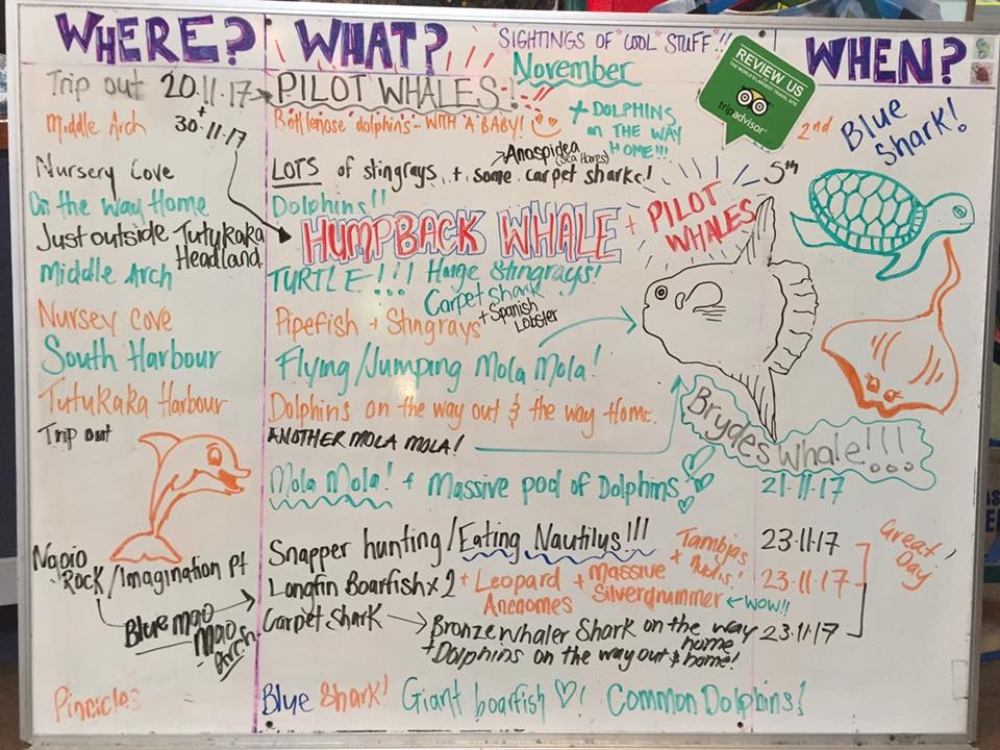 WHERE? WHAT? SIGHTINGS OF "COOL" STUFF"!! WHEN?
November
REVIEW US
THE WORLD'S LARGEST TRAVEL SITE
tripadvisor
Trip out 20.11.17 PILOT WHALES!
+ 30.11.17
Middle Arch Bottlenose dolphins - WITH A BABY! + DOLPHINS on THE WAY HOME!!! 2nd Blue Shark!
Nursery Cove LOTS of stingrays + some carpet sharks! Anaspidea (Sea Hares) 5th
On the way Home Dolphins!!
Just outside Tutukaka Headland HUMPBACK WHALE + PILOT WHALES
Middle Arch TURTLE!!! Huge Stingrays!
Carpet shark + Spanish Lobster
Nursey Cove Pipefish + Stingrays
South Harbour Flying/Jumping Mola Mola!
Tutukaka Harbour Dolphins on the way out & the way Home.
Trip out ANOTHER MOLA MOLA!
Brydes Whale!!!
Mola Mola! + Massive pod of Dolphins 21-11-17
Snapper hunting/Eating Nautilus!!! Tambjas + Nudis! 23.11.17 Great Day!
Ngoio Rock/Imagination Pt Longfin Boarfish x 2 + Leopard Anenomes + Massive Silverdrummer ← WOW!! 23-11-17
Blue mao mao Arch Carpet Shark → Bronzewhaler Shark on the way home 23.11.17
+ Dolphins on the way out & home!
Pinicles Blue Shark! Giant boarfish ♡! Common Dolphins!